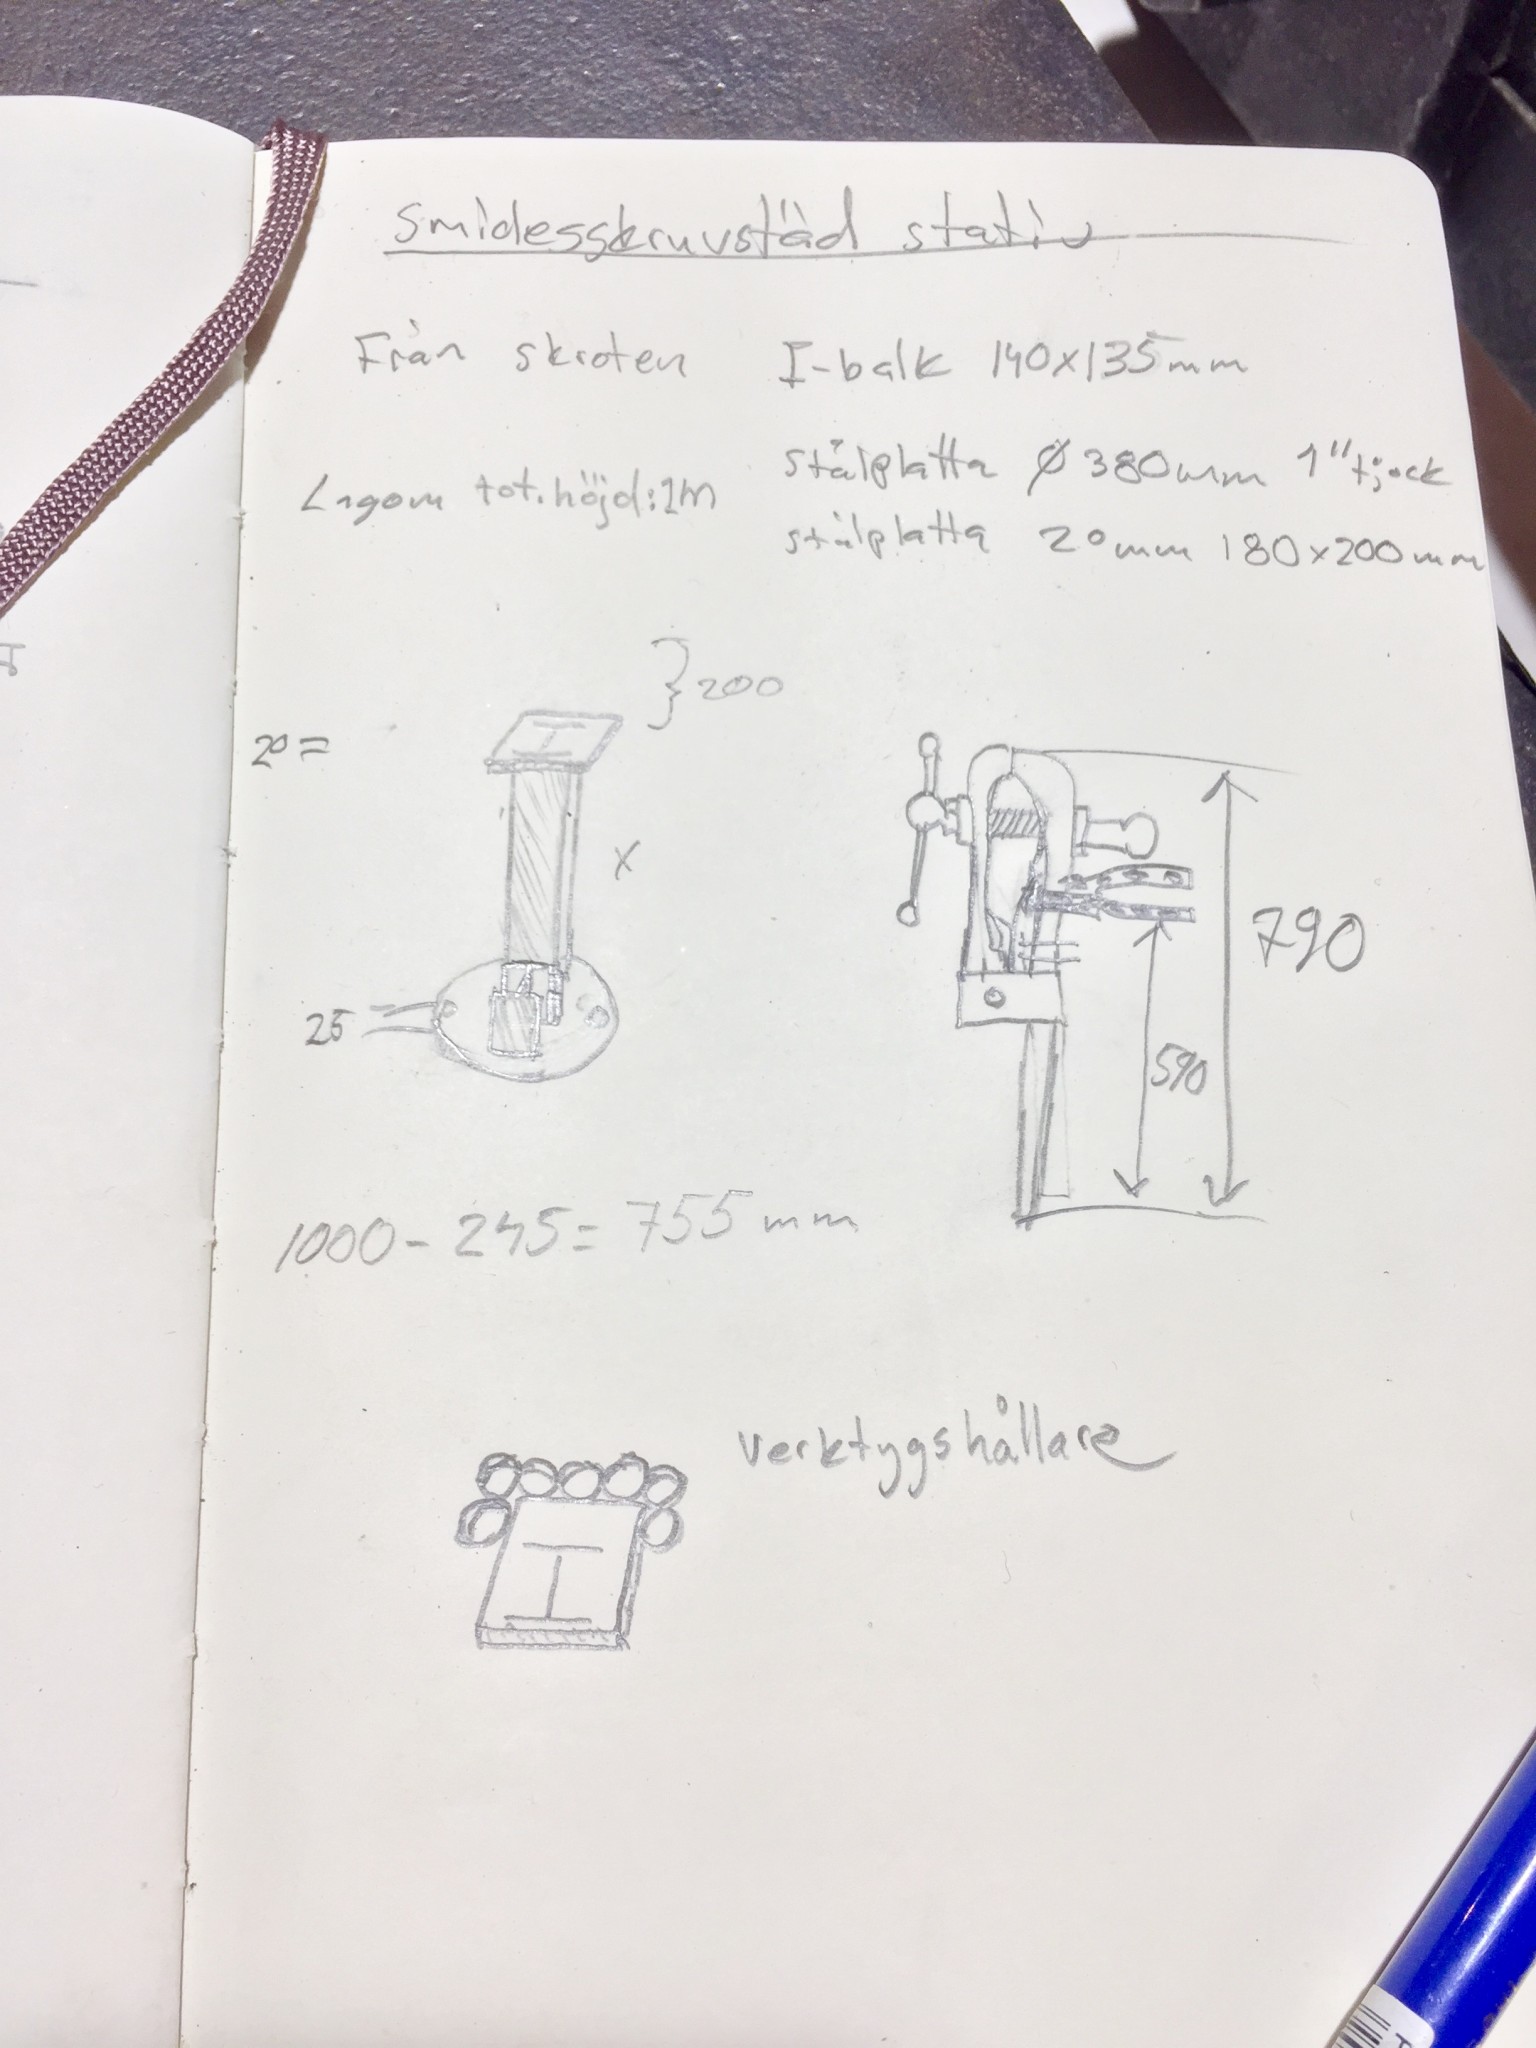 Smidesskruvstäd stativ
Från skroten I-balk 140x135mm
stålplatta Ø 380mm 1" tjock
Lagom tot. höjd: 1m
stålplatta 20mm 180x200mm
}200
20=
x
790
25
590
1000 - 245 = 755 mm
verktygshållare